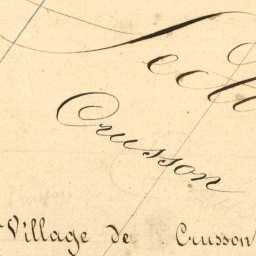 Crusson
Village de Crusson